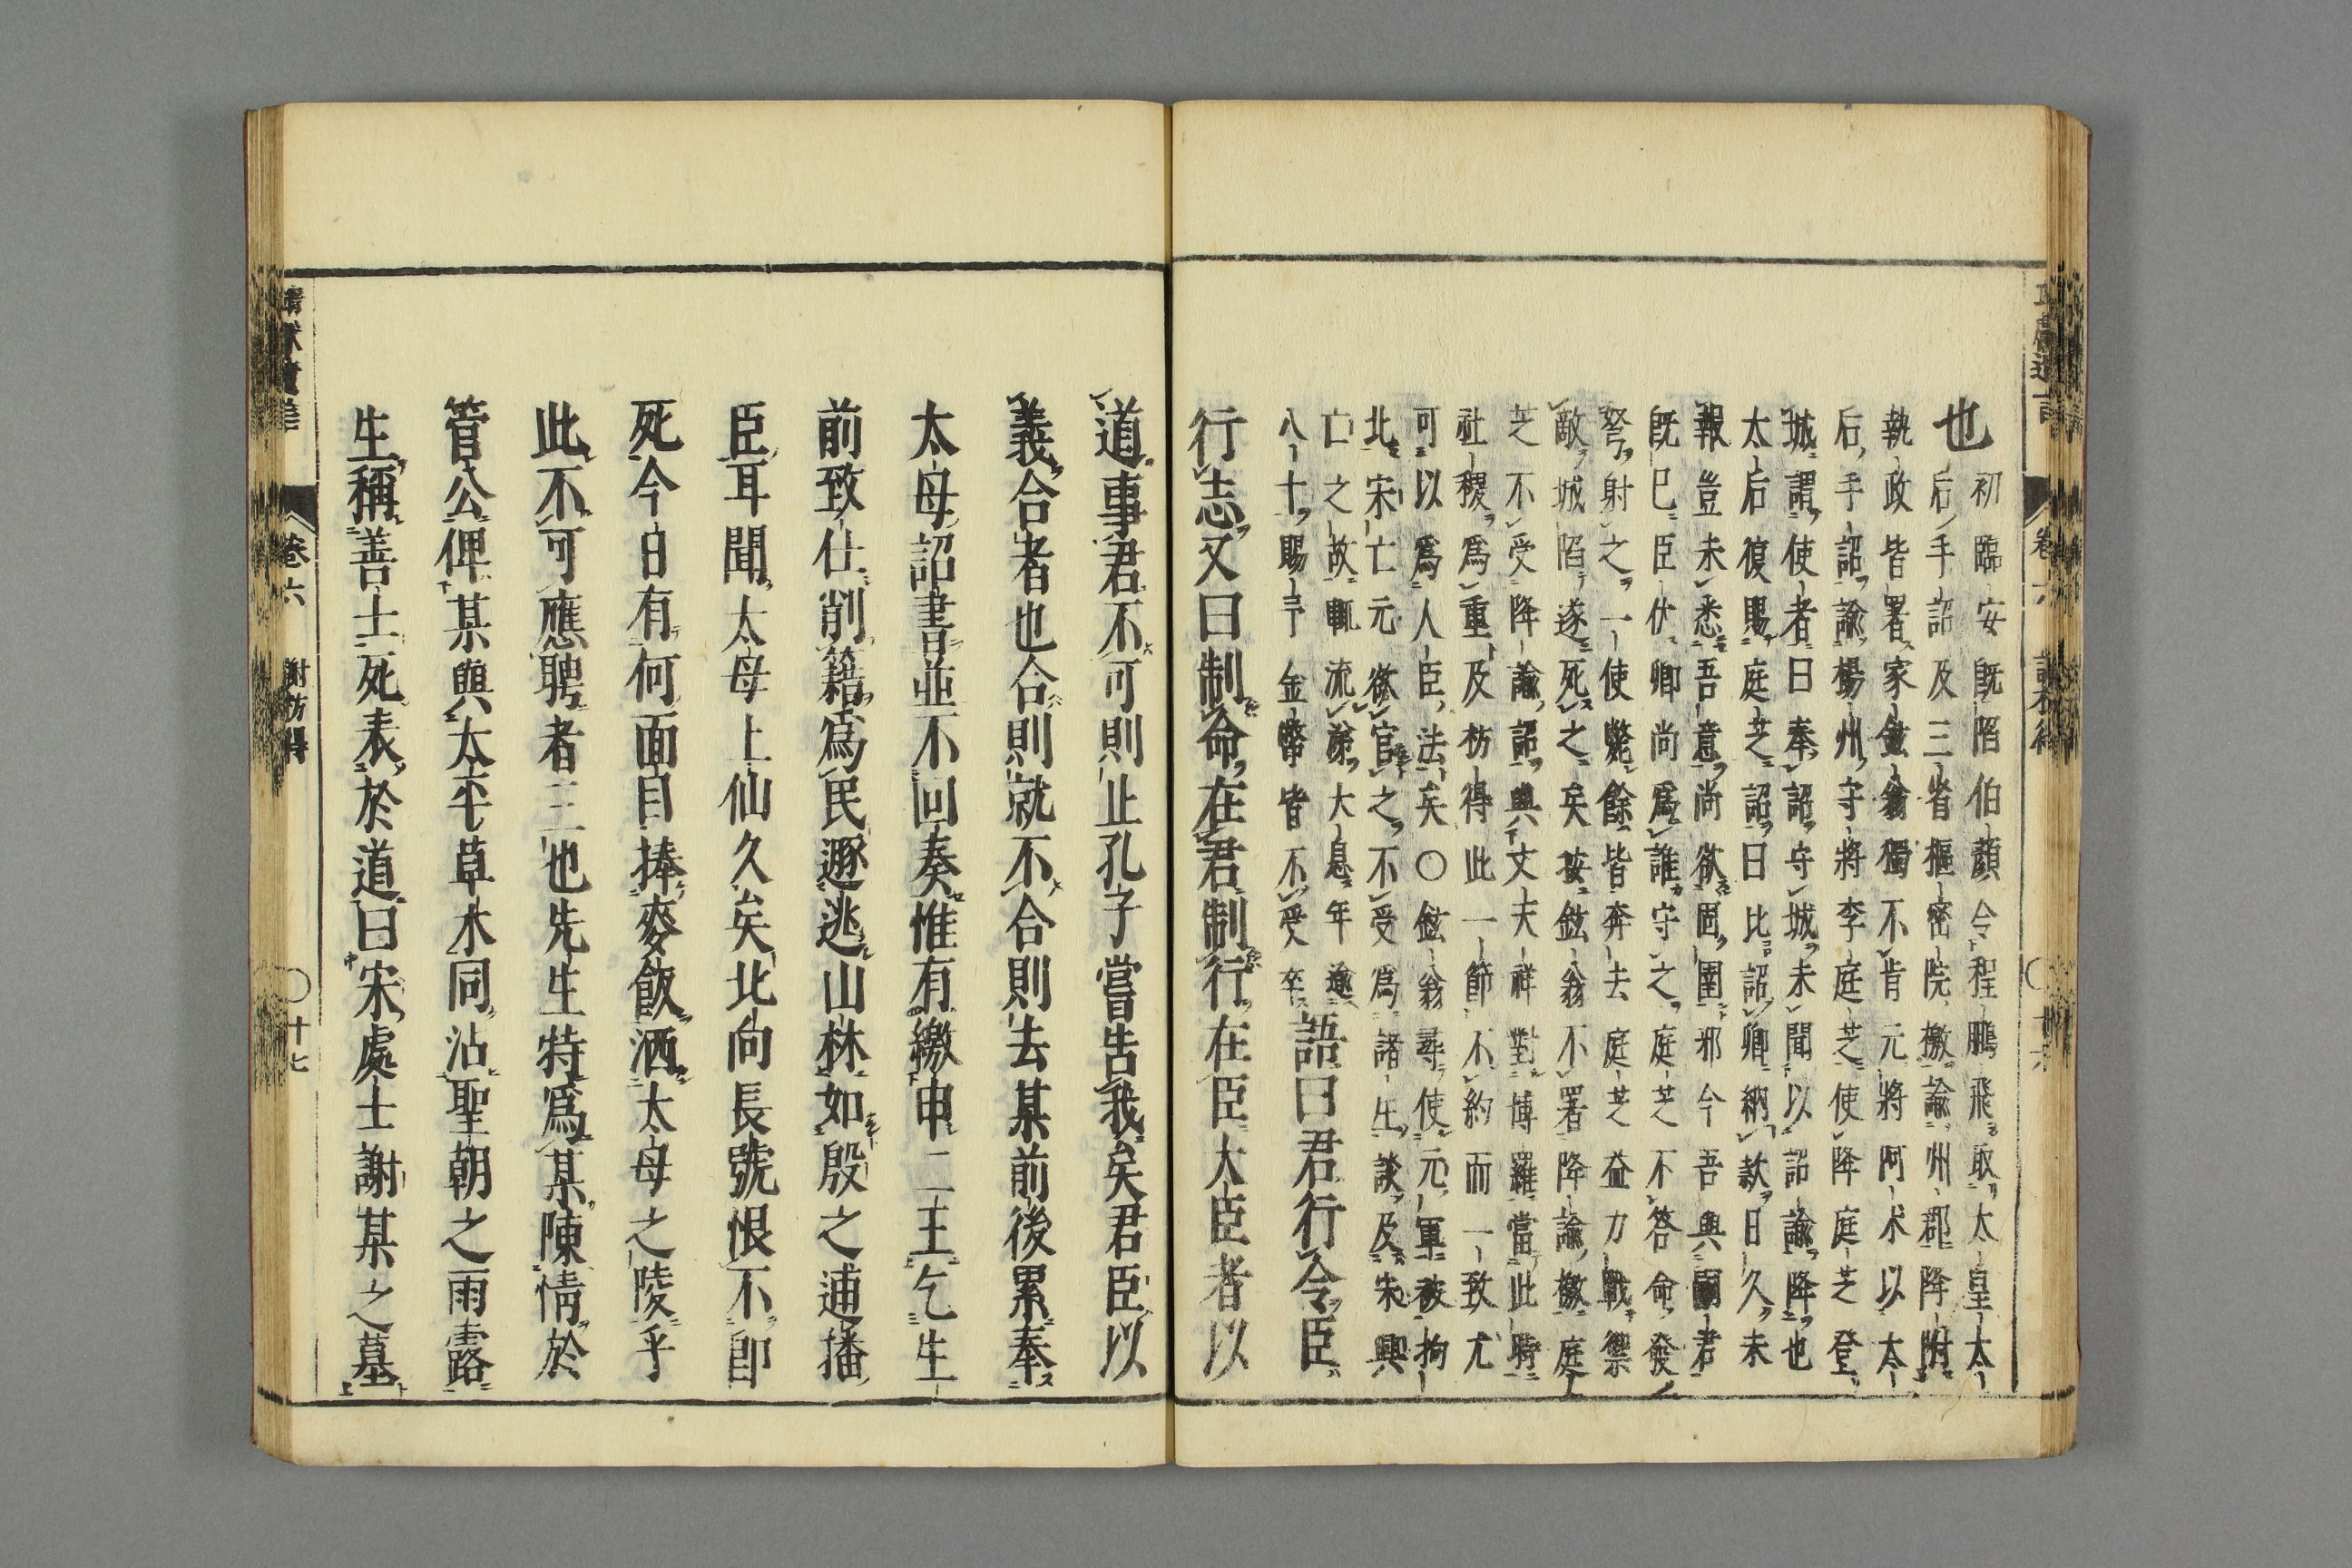 也
初臨安既陷伯顏令程鵬飛取太皇太
后手詔及三省樞密院檄諭州郡降附
執政皆署家鉉翁獨不肯元將阿术以太
后手詔諭楊州守將李庭芝使降庭芝登
城謂使者曰奉詔守城未聞以詔諭降也
太后復賜庭芝詔曰比詔卿納款日久未
報豈未悉吾意尚欲固圉邪今吾與嗣君
既巳臣伏卿尚爲誰守之庭芝不答命發
弩射之一使斃餘皆奔去庭芝益力戰禦
敵城陷遂死之矣按鉉翁不署降諭檄庭
芝不受降諭詔與丈夫祥對博羅當此時
社稷爲重及枋得此一節不約而一致尤
可以爲人臣法矣〇鉉翁尋使元軍被拘
北宋亡元欲官之不受爲諸生談及宋興
亡之故輒流涕大息年逾
八十賜予金幣皆不受卒
語曰君行令臣
行志又曰制命在君制行在臣大臣者以
道事君不可則止孔子嘗告我矣君臣以
義合者也合則就不合則去某前後累奉
太母詔書並不回奏惟有繳申二王乞生
前致仕削籍爲民遯逃山林如殷之逋播
臣耳聞太母上仙久矣北向長號恨不即
死今日有何面目捧麥飲洒太母之陵乎
此不可應聘者三也先生特爲某陳情於
管公俾某與太平草木同沾聖朝之雨露
生稱善士死表於道曰宋處士謝某之墓
卷六
謝枋得
〇十七